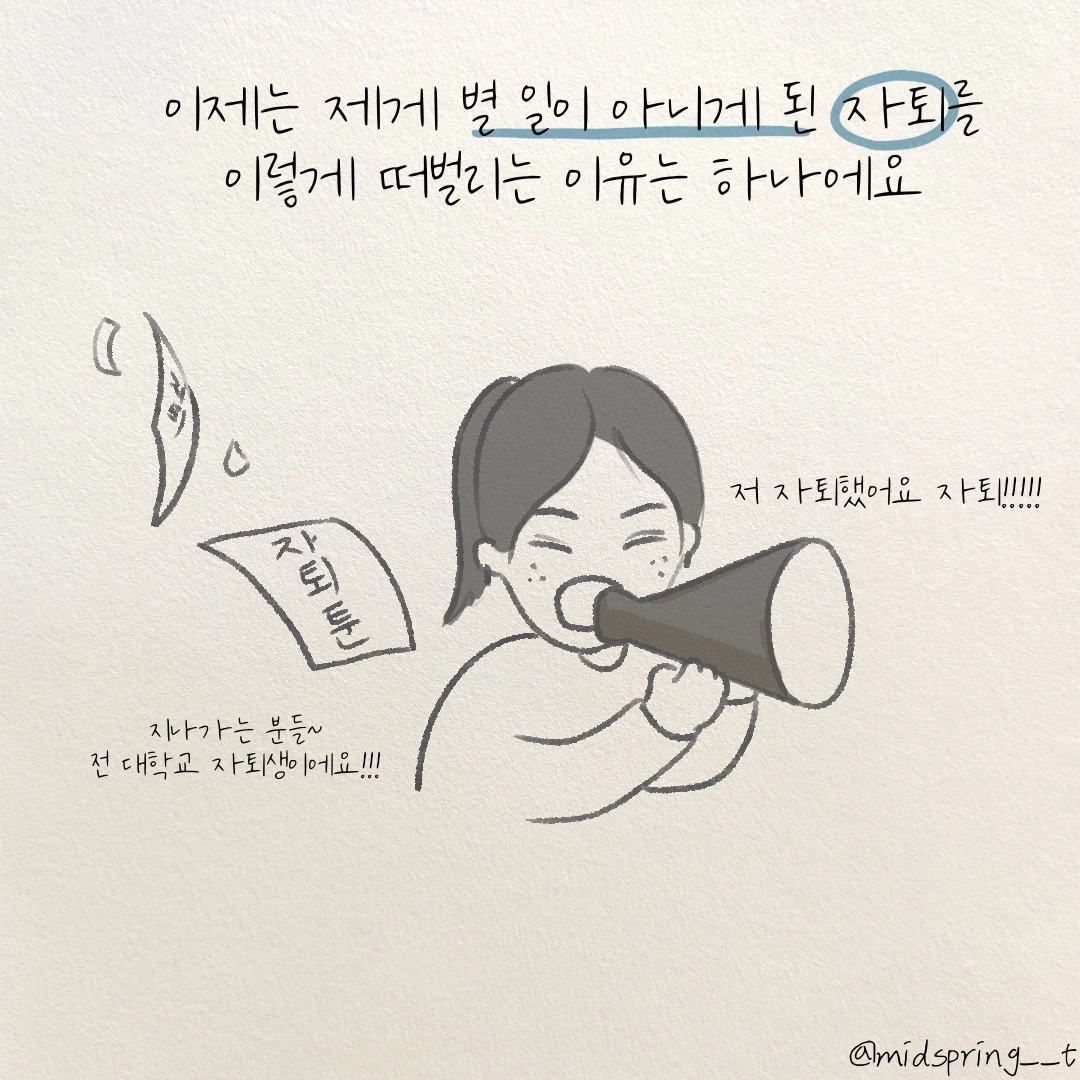 이제는 제게 별 일이 아니게 된 자퇴를
이렇게 떠벌리는 이유는 하나에요
저 자퇴했어요 자퇴!!!!!
자퇴
툰
지나가는 분들~
전 대학교 자퇴생이에요!!!
@midspring__t